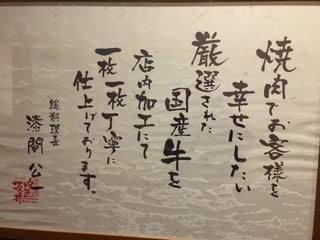 焼肉でお客様を
幸せにしたい
厳選された
国産牛を
店内加工にて
一枚一枚丁寧に
仕上げております。
総料理長
漆間 公一